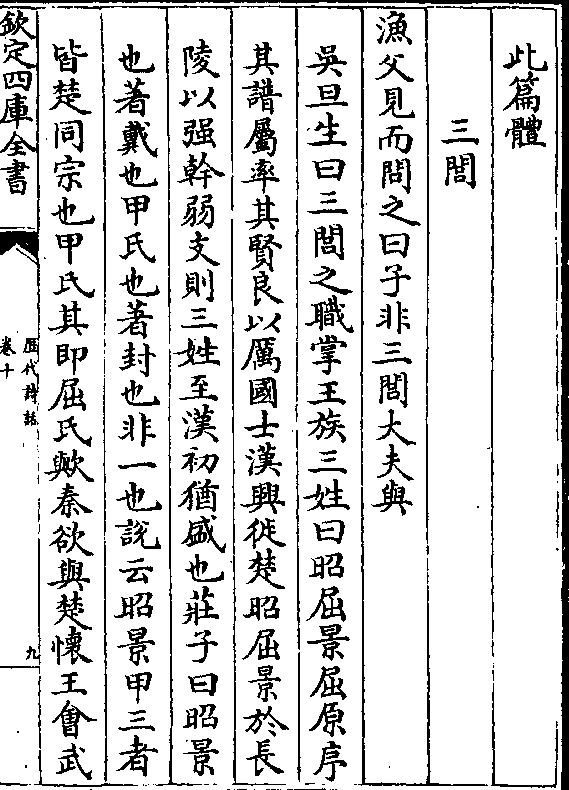 此篇體
三閭
漁父見而問之曰子非三閭大夫與
吳旦生曰三閭之職掌王族三姓曰昭屈景屈原序
其譜屬率其賢良以厲國士漢興徙楚昭屈景於長
陵以强幹弱支則三姓至漢初猶盛也莊子曰昭景
也著戴也甲氏也著封也非一也說云昭景甲三者
皆楚同宗也甲氏其即屈氏歟秦欲與楚懷王會武
欽定四庫全書
歷代詩話
卷十
九